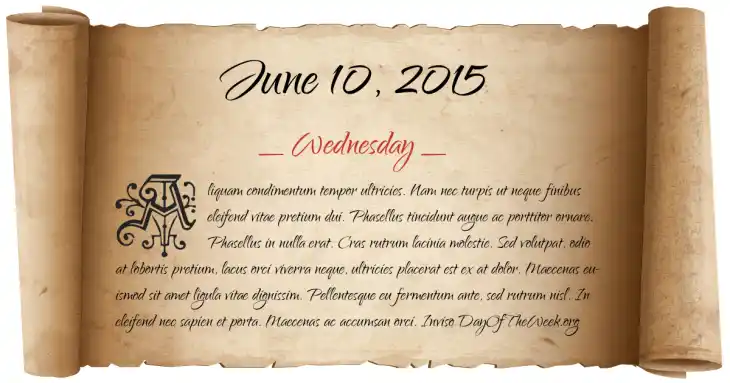 June 10, 2015
_ Wednesday _
Aliquam condimentum tempor ultricies. Nam nec turpis ut neque finibus
eleifend vitae pretium dui. Phasellus tincidunt augue ac porttitor ornare.
Phasellus in nulla erat. Cras rutrum lacinia molestie. Sed volutpat, odio
at lobortis pretium, lacus orci viverra neque, ultricies placerat est ex at dolor. Maecenas eu-
ismod sit amet ligula vitae dignissim. Pellentesque eu fermentum ante, sed rutrum nisl. In
eleifend nec sapien et porta. Maecenas ac accumsan orci. Inviso DayOfTheWeek.org